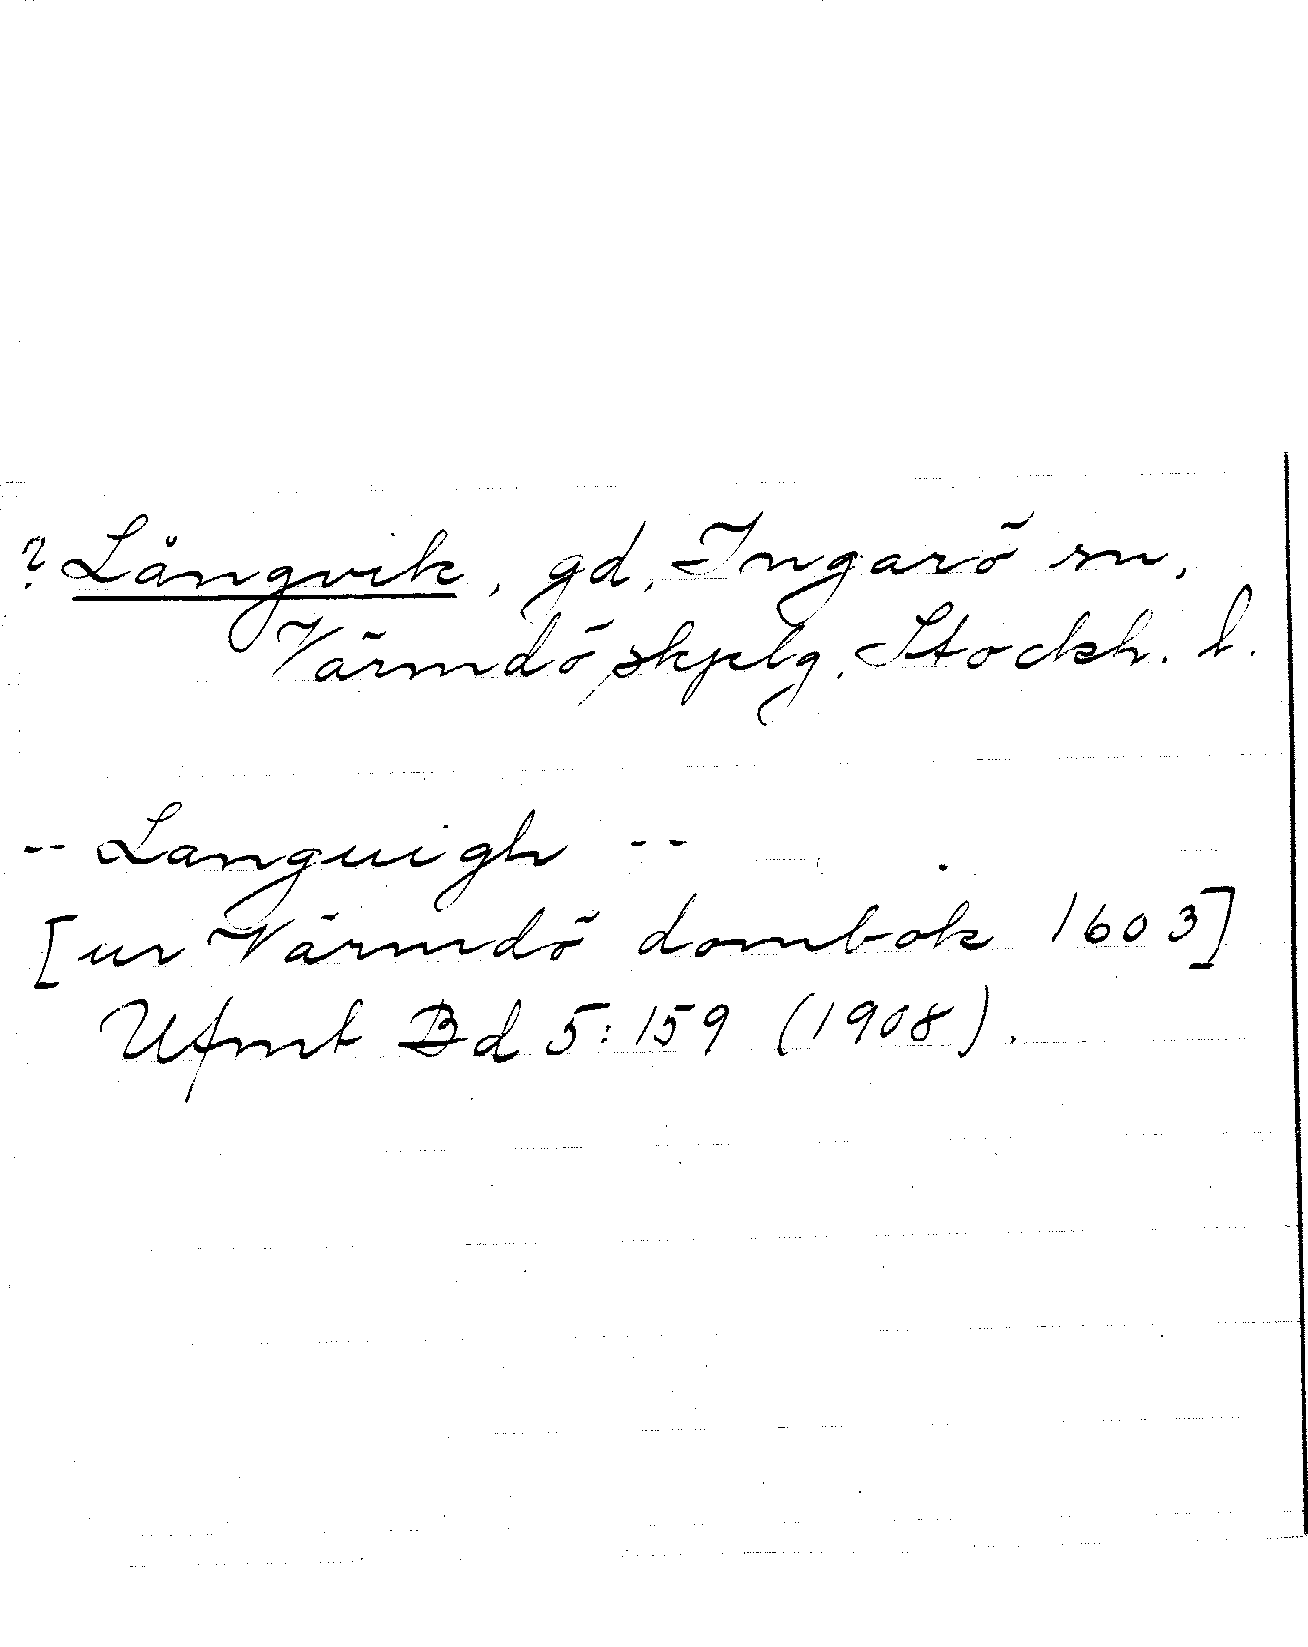 ? Långvik, gd, Ingarö sn,
Värmdö skplg, Stockh. l.
-- Languigh --
[ur Värmdö dombok 1603]
Ufmt Bd 5:159 (1908).